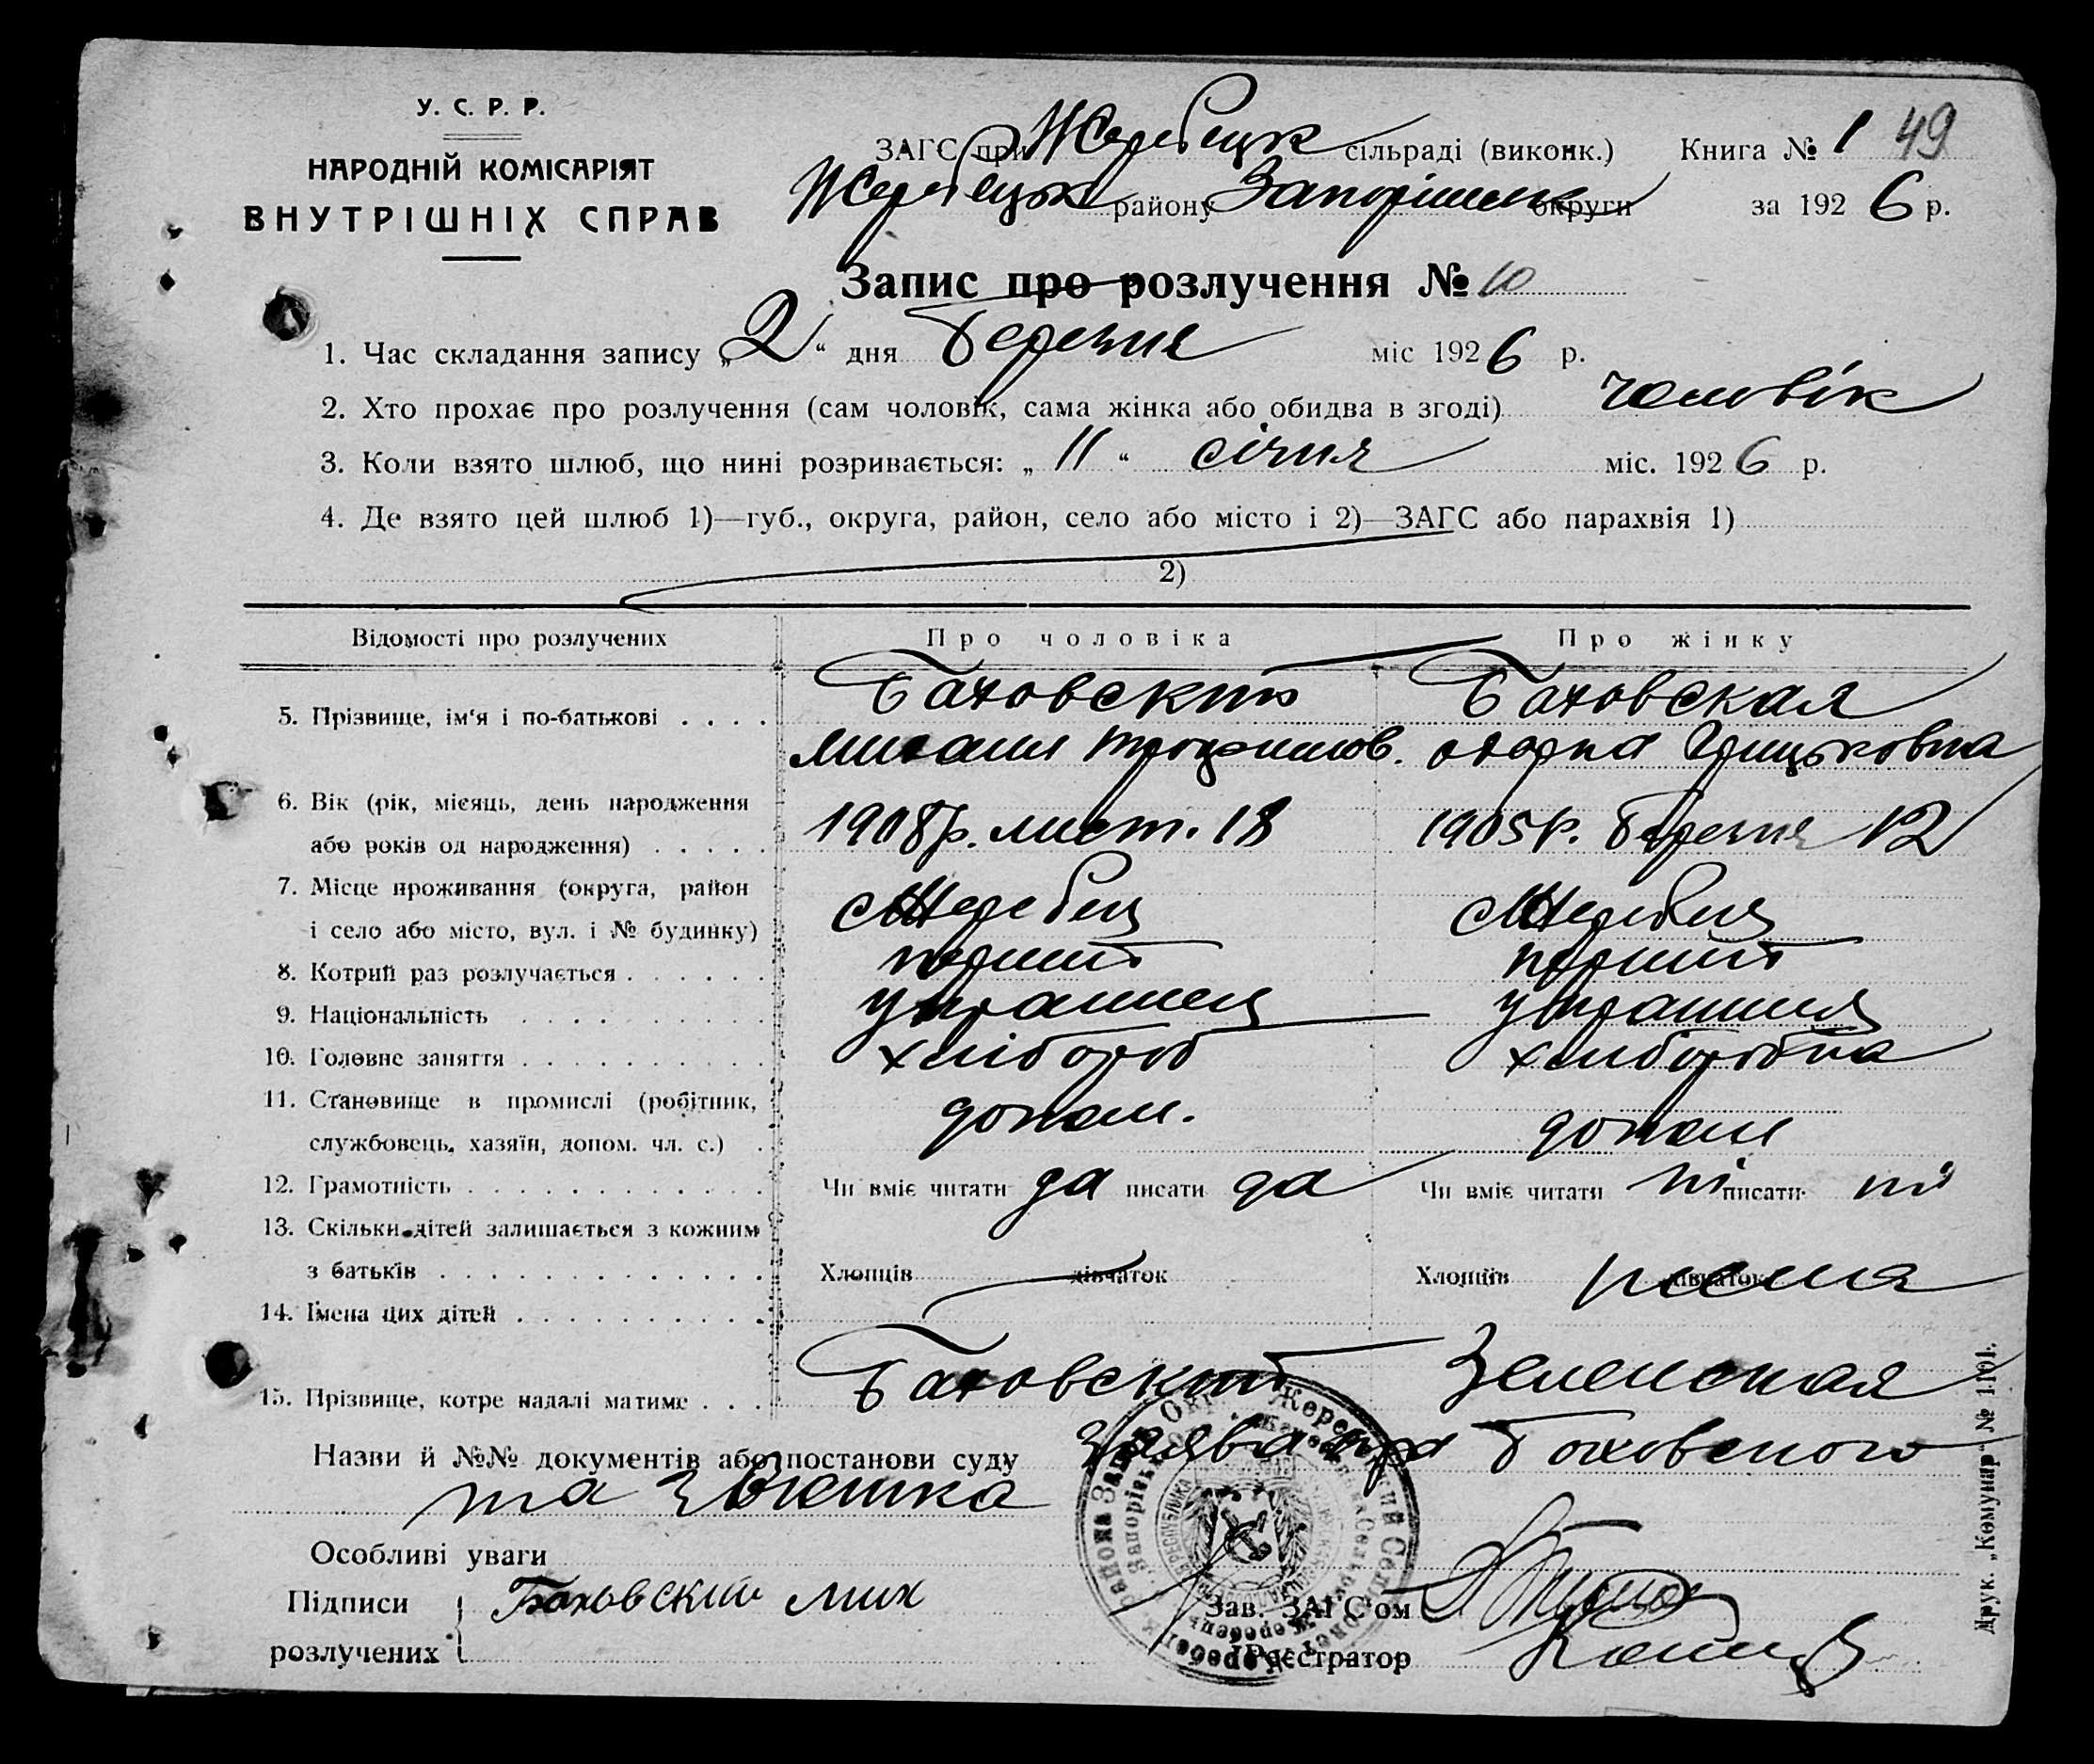 У. С. Р. Р.
НАРОДНІЙ КОМІСАРІЯТ
ВНУТРІШНІХ СПРАВ
ЗАГС при Жеребецьк сільраді (виконк.) Книга № 1 49
Жеребецьк району Запорішськ округи за 1926 р.
Запис про розлучення № 10
1. Час складання запису „2“ дня березня міс 1926 р.
2. Хто прохає про розлучення (сам чоловік, сама жінка або обидва в згоді) чоловік
3. Коли взято шлюб, що нині розривається: „11“ січня міс. 1926 р.
4. Де взято цей шлюб 1)—губ., округа, район, село або місто і 2)—ЗАГС або парахвія 1)
2)
Відомості про розлучених Про чоловіка Про жінку
5. Прізвище, ім'я і по-батькові Баховский Баховская
михаил трохимов. одарка Грицьковна
6. Вік (рік, місяць, день народження
або років од народження) 1908р. лист. 18 1905р. березня 12
7. Місце проживання (округа, район
і село або місто, вул. і № будинку) с Жеребец с Жеребец
8. Котрий раз розлучається перший перший
9. Національність украинец
10. Головне заняття хлібороб хліборобка
11. Становище в промислі (робітник,
службовець, хазяїн, допом. чл. с.) допом. допом
12. Грамотність Чи вміє читати да писати да Чи вміє читати ні писати ні
13. Скільки дітей залишається з кожним
з батьків Хлопців дівчаток Хлопців дівчаток нема
14. Імена цих дітей
15. Прізвище, котре надалі матиме Баховский Зеленская
Назви й №№ документів або постанови суду Заява гр Баховского
та
Особливі уваги
Підписи Баховский Мих Зав. ЗАГС'ом
розлучених Реєстратор
Друк. „Комунар“ № 1101.